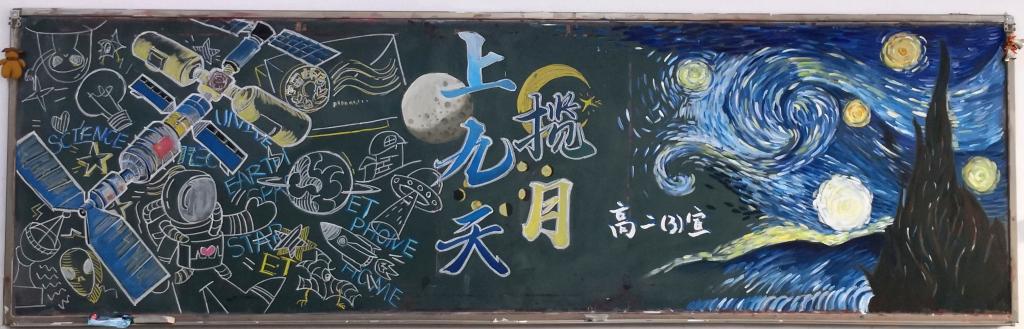 SCIENCE
UNIVE
EARTH
STAR
ET
ET
PHONE
HOME
上九天
揽月
高二(3)宣